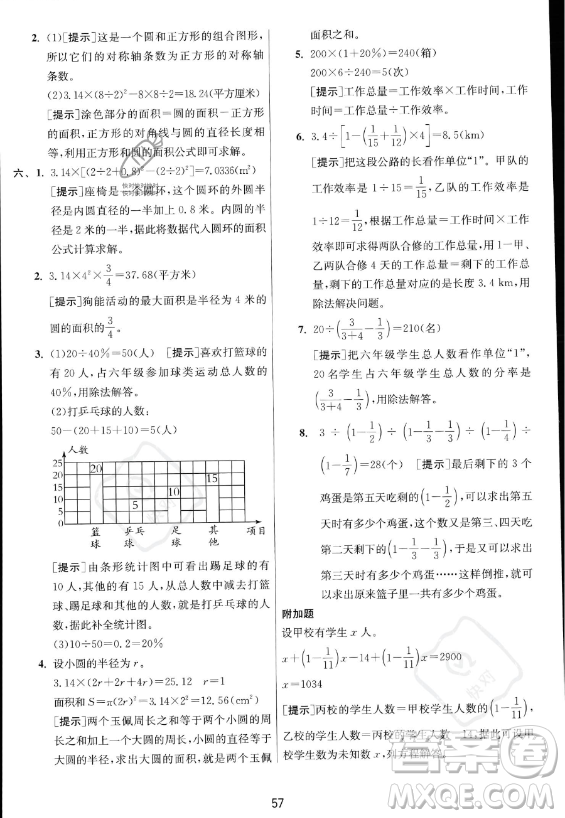 2. (1)[提示]这是一个圆和正方形的组合图形，
所以它们的对称轴条数为正方形的对称轴
条数。
(2)3.14×(8÷2)²－8×8÷2＝18.24(平方厘米)
[提示]涂色部分的面积＝圆的面积－正方形
的面积，正方形的对角线与圆的直径长度相
等，利用正方形和圆的面积公式即可求解。
六、1. 3.14×[(2÷2＋0.8)²－(2÷2)²]＝7.0336(m²)
[提示]座椅是一个圆环，这个圆环的外圆半
径是内圆直径的一半加上 0.8 米。内圆的半
径是 2 米的一半，据此将数据代入圆环的面积
公式计算求解。
2. 3.14×4²×3/4＝37.68(平方米)
[提示]狗能活动的最大面积是半径为 4 米的
圆的面积的3/4。
3. (1)20÷40％＝50(人) [提示]喜欢打篮球的
占六年级参加球类运动总人数的
40％，用除法解答。
(2)打乒乓球的人数：
50－(20＋15＋10)＝5(人)
人数
25
20
15
10
5
0
20
5
10
15
篮球 乒乓球 足球 其他 项目
[提示]由条形统计图中可以看出踢足球的有
10 人，其他的有 15 人，从总人数中减去打篮
球、踢足球和其他的人数，就是打乒乓球的人
数，据此补全统计图。
(3)10÷50＝0.2＝20％
4. 设小圆的半径为 r。
3.14×(2r＋2r＋4r)＝25.12 r＝1
面积和 S＝π(2r)²＝3.14×2²＝12.56(cm²)
[提示]两个玉佩周长之和为大圆的周长与两
个小圆的周长之和，小圆的直径等于大圆的
半径，据此求出小圆的半径，两个玉佩的面
积和为大圆的面积，而不是大圆与两个小圆的
面积之和。
5. 200×(1＋20％)＝240(箱)
200×6÷240＝5(次)
[提示]工作总量＝工作效率×工作时间，工作
时间＝工作总量÷工作效率。
6. 3.4÷[1－(1/15＋1/12)×4]＝8.5(km)
[提示]把这段公路的长看作单位“1”。甲队的
工作效率是 1÷15＝1/15，乙队的工作效率是
1÷12＝1/12，根据工作总量＝工作效率×工作时
间，求出两队合修的工作总量，用 1－甲、
乙两队合修的工作总量，求出剩下的工作总
量，剩下的工作总量对应的是 3.4 千米，用
除法解决问题。
7. 20÷(3/(3＋4)－1/3)＝210(名)
[提示]把六年级学生总人数看作单位“1”，
20 名学生占六年级学生总人数的分率是
(3/(3＋4)－1/3)，用除法解答。
8. 3÷(1－1/2)÷(1－1/3)÷(1－1/5)÷
(1－1/7)＝28(个) [提示]最后剩下的 3 个
鸡蛋是第五天吃剩的，
时有多少个鸡蛋，
出第三天吃时有多少个鸡蛋……这样倒推，就可
以求出原来篮子里一共有多少个鸡蛋。
附加题
设甲校有学生 x 人。
x＋(1－1/11)x－14＋(1－1/11)x＝2900
x＝1034
[提示]丙校的学生人数＝甲校学生人数×(1－1/11)，
乙校的学生人数＝丙校学生人数－14，据此可设甲
校学生数为未知数 x，列方程解答。
57